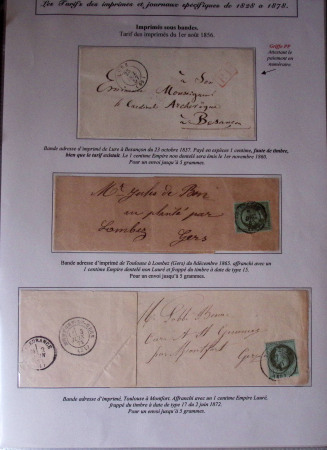 Les Tarifs des imprimés et journaux spécifiques de 1828 à 1878.
Imprimés sous bandes.
Tarif des imprimés du 1er août 1856.
Griffe PP
Attestant le
paiement en
numéraire.
à Son
Monseigneur
le Cardinal Archevêque
à Besançon
Bande adresse d'imprimé de Lure à Besançon du 23 octobre 1857. Payé en espèces 1 centime, faute de timbre,
bien que le tarif existait. Le 1 centime Empire non dentelé sera émis le 1er novembre 1860.
Pour un envoi jusqu'à 5 grammes.
Mr Jules de
en planté par
Lombez
Gers
Bande adresse d'imprimé de Toulouse à Lombez (Gers) du 8 décembre 1865, affranchi avec un
1 centime Empire dentelé non Lauré et frappé du timbre à date de type 15.
Pour un envoi jusqu'à 5 grammes.
par Montfort
Gers
Bande adresse d'imprimé, Toulouse à Monfort. Affranchi avec un 1 centime Empire Lauré,
frappé du timbre à date de type 17 du 2 juin 1872.
Pour un envoi jusqu'à 5 grammes.